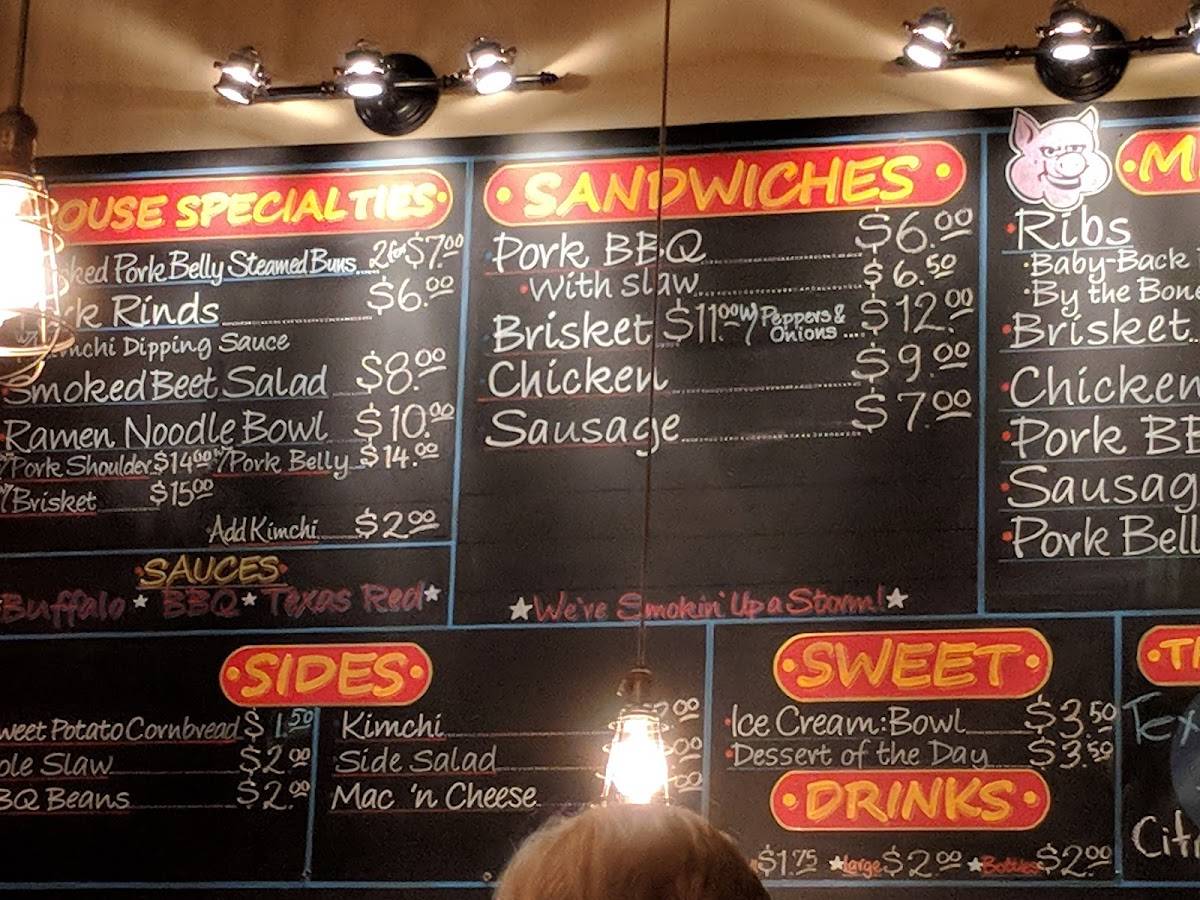 OUSE SPECIALTIES
ked Pork Belly Steamed Buns 2 for $7.00
rk Rinds $6.00
w/ Kimchi Dipping Sauce
Smoked Beet Salad $8.00
Ramen Noodle Bowl $10.00
w/ Pork Shoulder $14.00 w/ Pork Belly $14.00
w/ Brisket $15.00
Add Kimchi $2.00
SAUCES
Buffalo ★ BBQ ★ Texas Red ★
SANDWICHES
Pork BBQ $6.00
With slaw $6.50
Brisket $11.00 w/ Peppers & Onions $12.00
Chicken $9.00
Sausage $7.00
★ We're Smokin' Up a Storm! ★
M
Ribs
Baby-Back
By the Bone
Brisket
Chicken
Pork BB
Sausag
Pork Bell
SIDES
weet Potato Cornbread $1.50
ole Slaw $2.00
BQ Beans $2.00
Kimchi 2.00
Side Salad .00
Mac 'n Cheese .00
SWEET
Ice Cream: Bowl $3.50
Dessert of the Day $3.50
DRINKS
$1.75 ★ Large $2.00 ★ Bottles $2.00
T
Tex
Cit